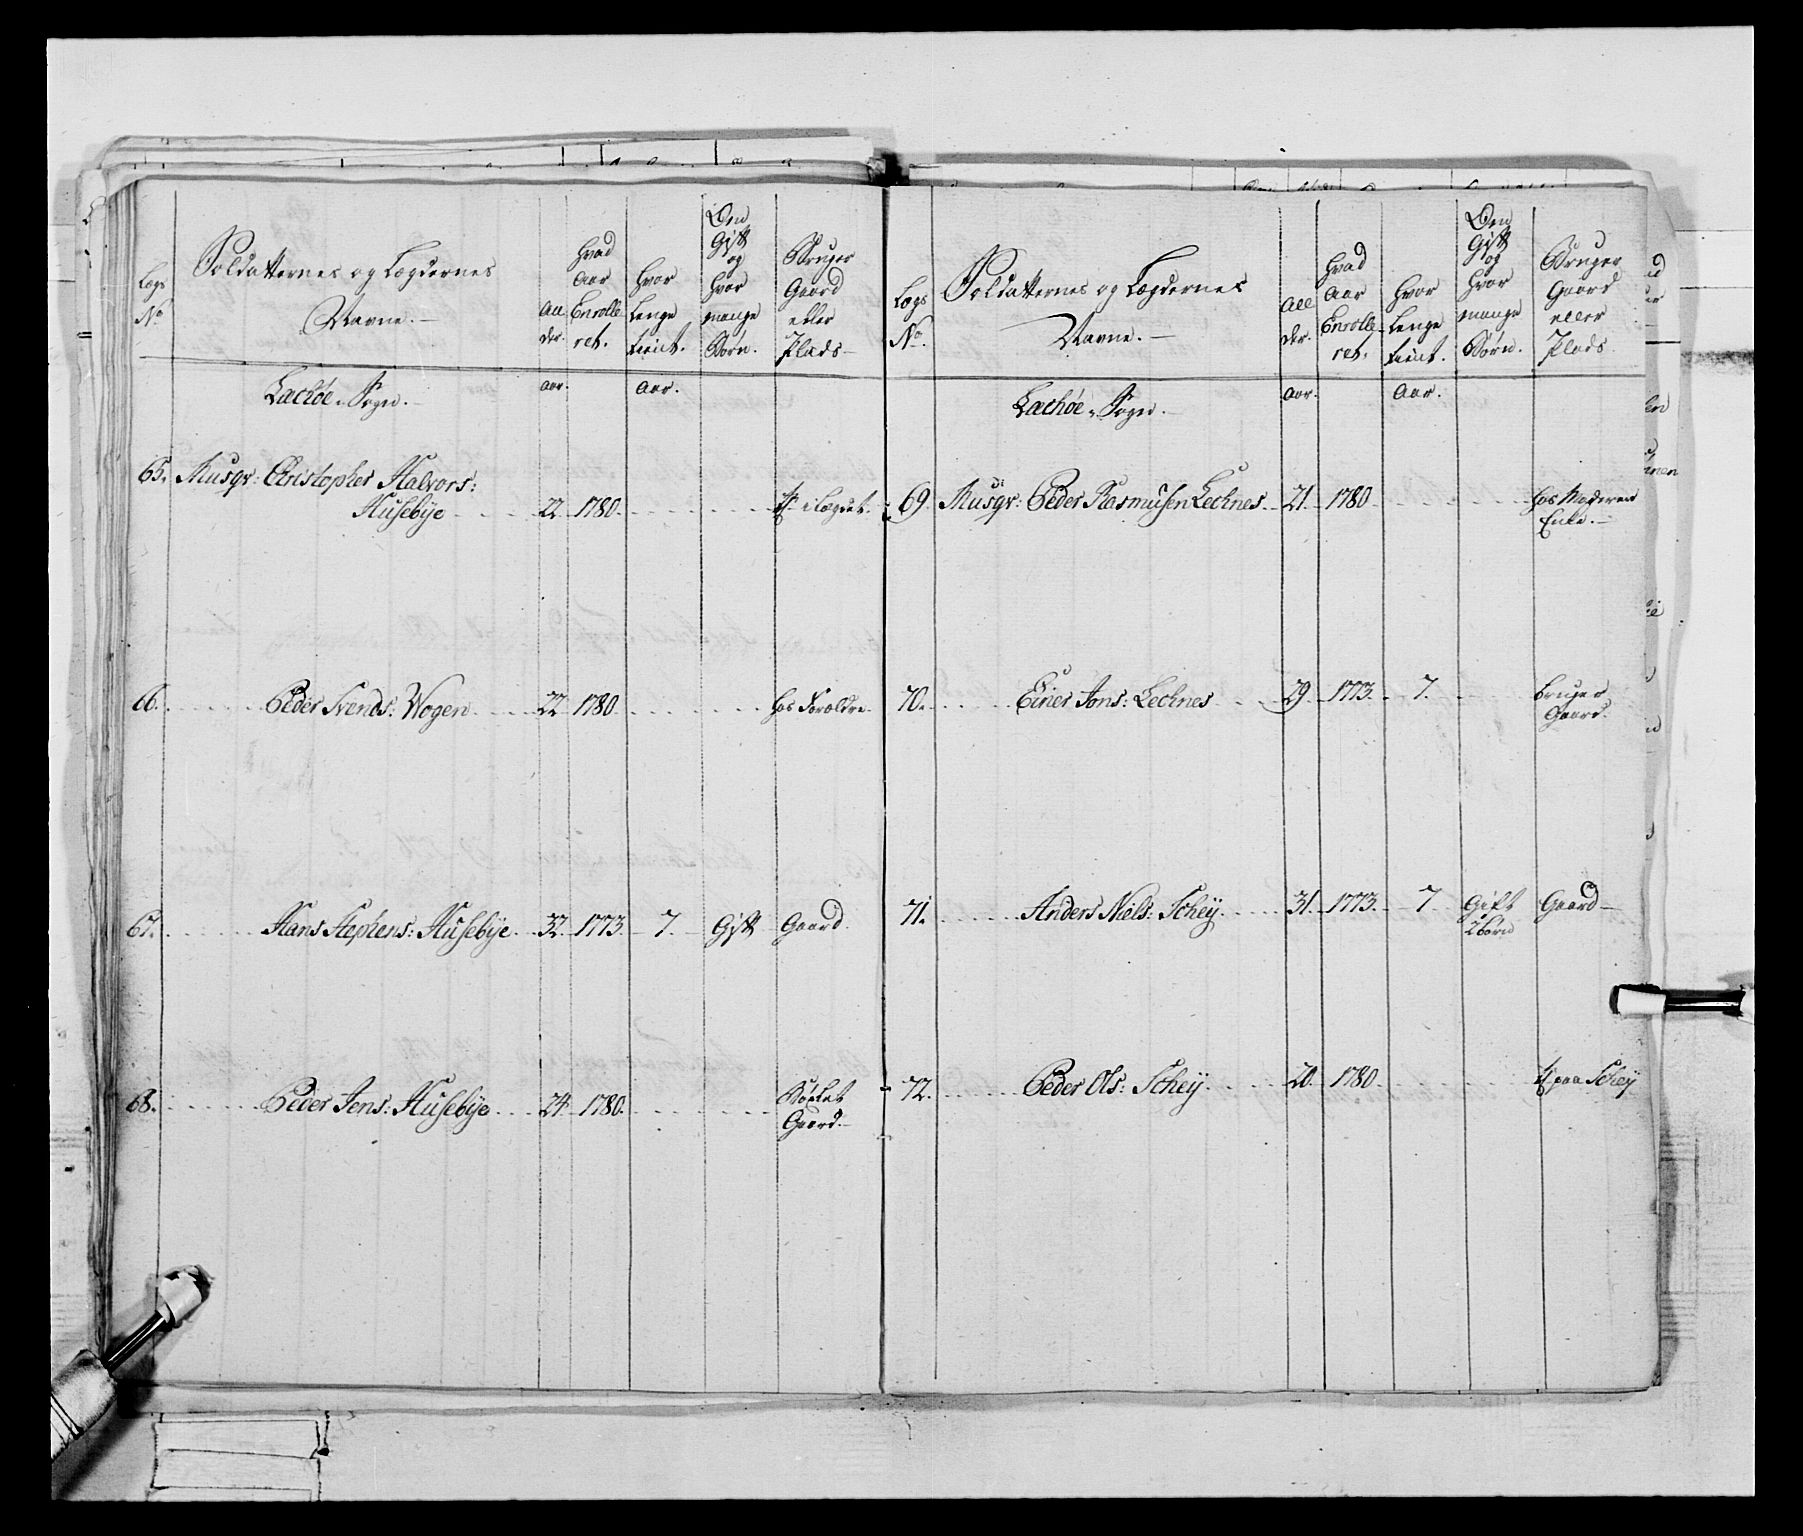 Lægs
No
Soldatternes og Lægdernes
Navne.
All
der.
Hvad
Aar
Enrolle
ret.
Hvor
Lenge
tient.
Om
Gift
og
hvor
mange
Børn.
Bruger
Gaard
eller
Plads
Laehöe Sogn.
aar.
Aar.
65. Musqr: Christopher Halvors:
Husebÿe 22 1780. i Lægdet.
66. Peder Svends: Wogen 22 1780. hos Forældre
67. Hans Stephens: Husebÿe 32. 1773. 7. Gift Gaard.
68. Peder Jens: Husebÿe 24 1780.
Gaard.
Lægs
No.
Soldatternes og Lægdernes
Navne.
All
der.
Hvad
Aar
Enrolle
ret.
Hvor
Lenge
tient.
Om
Gift
og
hvor
mange
Børn.
Bruger
Gaard
eller
Plads
Laehöe Sogn.
aar.
Aar.
69. Musqr: Peder Rasmusen Lechnes 21. 1780 hos Moderen
Enke.
70. Einer Jons: Lechnes 29. 1773. 7. bruger
Gaard.
71. Anders Niels: Schey. 31. 1773. 7 Gift Gaard
2 børn
72. Peder Ols: Schey. 20. 1780. paa Schey